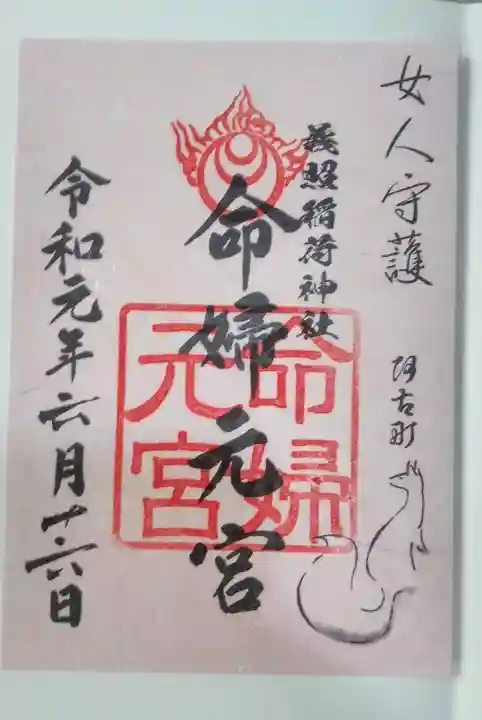 女人守護
阿古町
義照稲荷神社
命婦元宮
命婦元宮
令和元年六月十六日